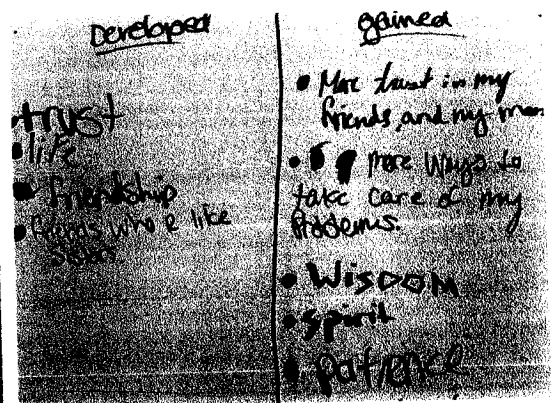 Developed
trust
life
friendship
friends who like
sisters
gained
More trust in my
friends, and my mom
more ways to
take care of my
Problems.
Wisdom
spirit
patience